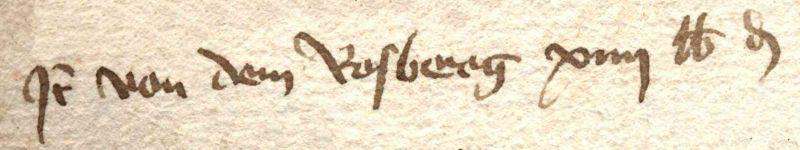 Jt von dem Rosberg xiiii lb d